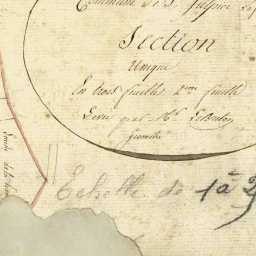 Commune de S.
Section
Unique
En trois feuilles 2me feuille
Levée par Mr
géomètre
Echelle de 1 à 2